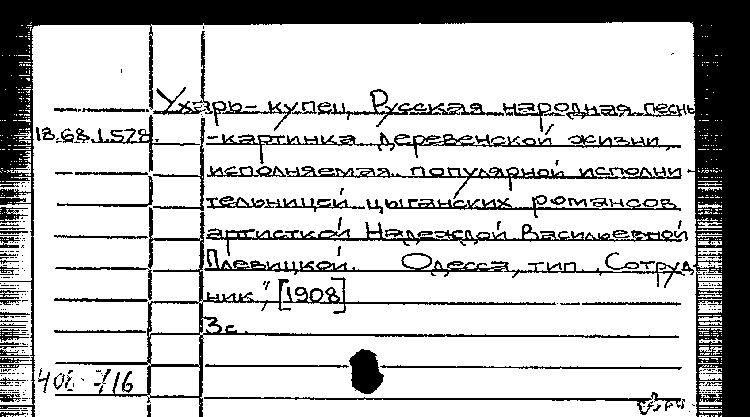 Ухарь-купец, Русская народная песнь
18.68.1.578. -картинка деревенской жизни,
исполняемая популярной исполни-
тельницей цыганских романсов
артисткой Надеждой Васильевной
Плевицкой. Одесса, тип. „Сотруд-
ник", [1908]
3с.
406-716